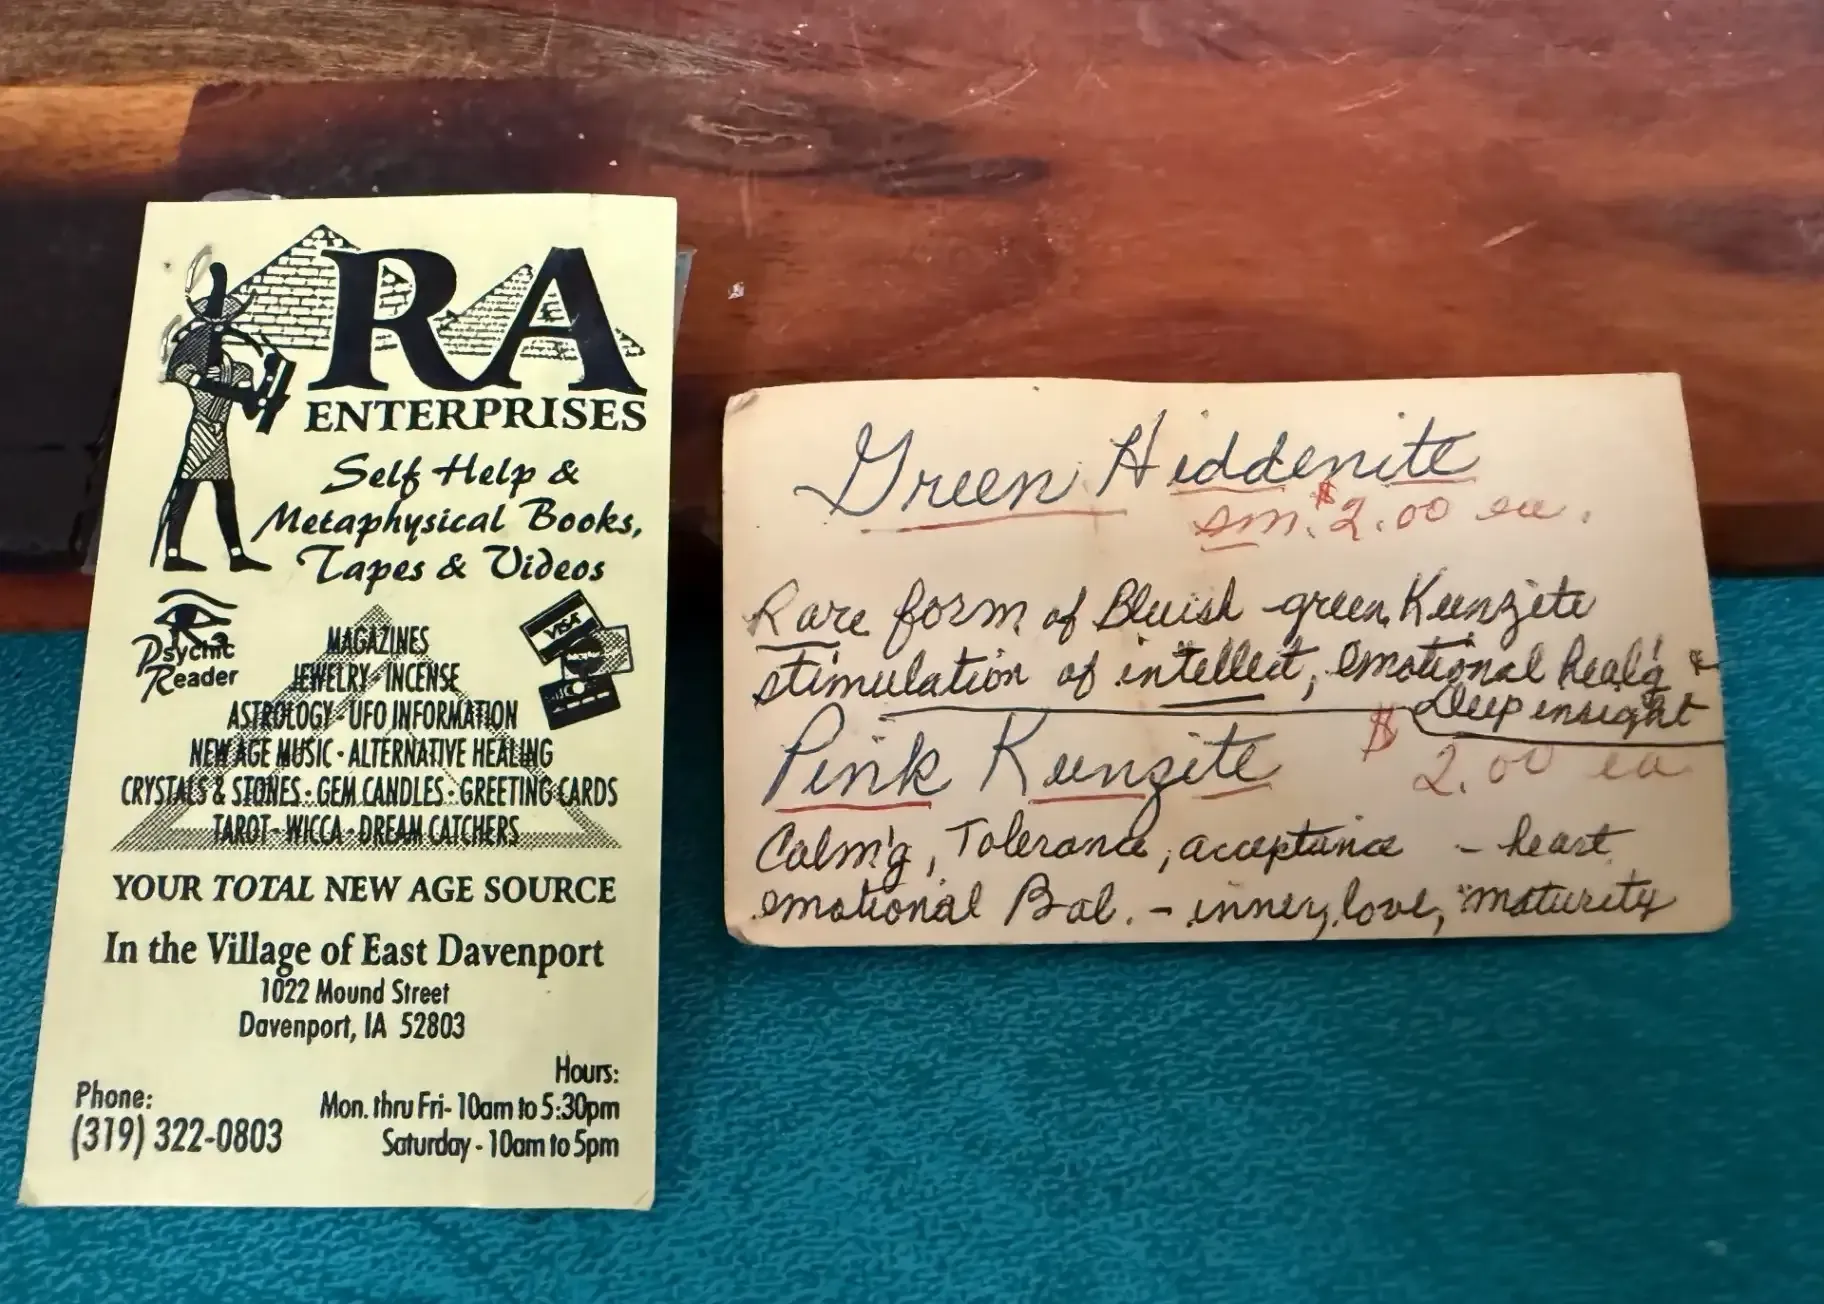 RA
ENTERPRISES
Self Help &
Metaphysical Books,
Tapes & Videos
Psychic
Reader
VISA
MAGAZINES
JEWELRY - INCENSE
ASTROLOGY - UFO INFORMATION
NEW AGE MUSIC - ALTERNATIVE HEALING
CRYSTALS & STONES - GEM CANDLES - GREETING CARDS
TAROT - WICCA - DREAM CATCHERS
YOUR TOTAL NEW AGE SOURCE
In the Village of East Davenport
1022 Mound Street
Davenport, IA 52803
Phone:
(319) 322-0803
Hours:
Mon. thru Fri- 10am to 5:30pm
Saturday - 10am to 5pm
Green Hiddenite
sm. $2.00 ea.
Rare form of Bluish-green Kunzite
stimulation of intellect, emotional heal'g &
Deep insight
Pink Kunzite $2.00 ea
Calm'g, Tolerance, acceptance - heart
emotional Bal. - inner love, maturity